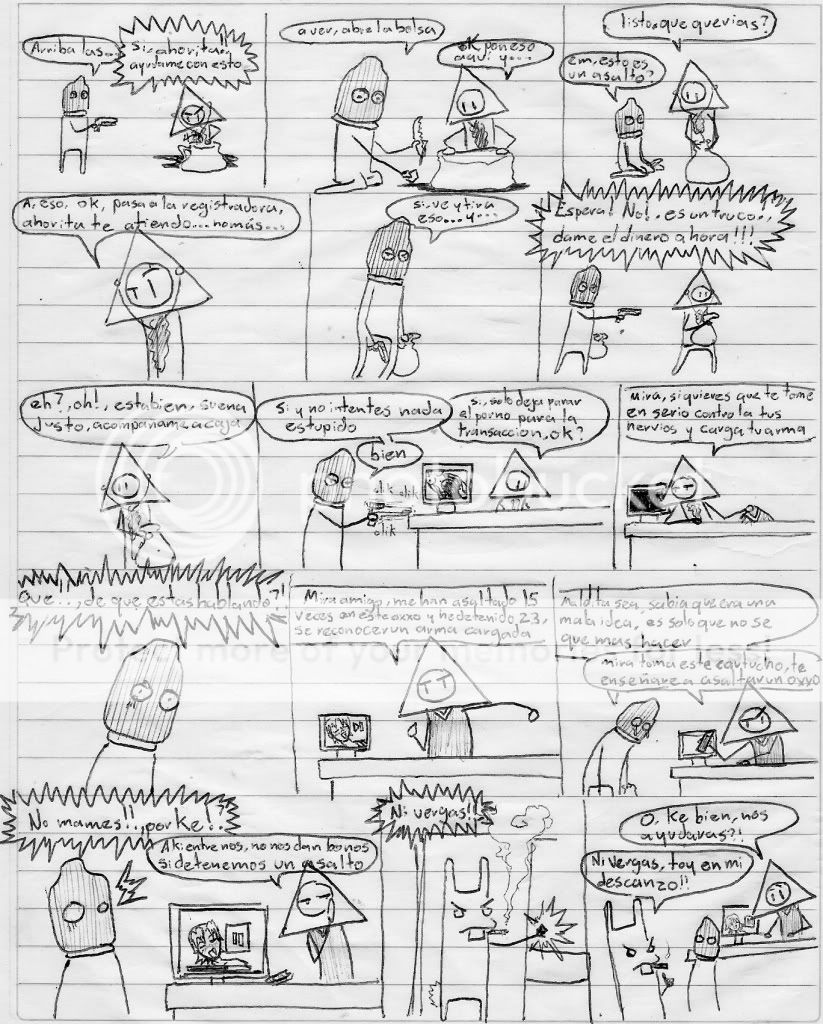 Arriba las...
Si, ahorita,
ayudame con esto
a ver, abre la bolsa
ok pon eso
aqui y...
listo, que querias?
em, esto es
un asalto?
A, eso, ok, pasa a la registradora,
ahorita te atiendo...nomás...
si, ve y tira
eso...y...
Espera! No!, es un truco..,
dame el dinero ahora!!!
eh?, oh!, esta bien, suena
justo, acompañame a caja
Si y no intentes nada
estupido
si, solo deja parar
el porno para la
transaccion, ok?
bien
clik clik
clik
Mira, si quieres que te tome
en serio controla tus
nervios y carga tu arma
Que..., de que estas hablando?!
Mira amigo, me han asaltado 15
veces en este oxxo y he detenido 23,
se reconocer un arma cargada
Maldita sea, sabia que era una
mala idea, es solo que no se
que mas hacer
mira toma este cartucho, te
enseñare a asaltar un oxxo
No mames!!, por ke!?
Aki entre nos, no nos dan bonos
si detenemos un asalto
Ni vergas!!
O, Ke bien, nos
ayudaras?!
Ni vergas, toy en mi
descanzo!!
photobucket
Protect more of your memories for less!